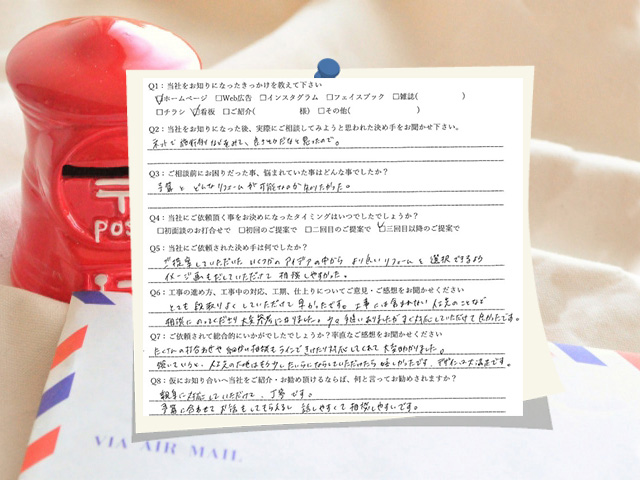 Q1：当社をお知りになったきっかけを教えて下さい
☑ホームページ □Web広告 □インスタグラム □フェイスブック □雑誌( )
□チラシ ☑看板 □ご紹介( 様) □その他( )
Q2：当社をお知りになった後、実際にご相談してみようと思われた決め手をお聞かせ下さい。
ネットで施工例などをみて、良さそうだなと思ったので。
Q3：ご相談前にお困りだった事、悩まれていた事はどんな事でしたか？
予算と どんなリフォームが可能なのか知りたかった。
Q4：当社にご依頼頂く事をお決めになったタイミングはいつでしたでしょうか？
□初面談のお打合せで □初回のご提案で □二回目のご提案で ☑三回目以降のご提案で
Q5：当社にご依頼された決め手は何でしたか？
ご提案していただいた いくつかのアイデアの中から より良いリフォームを選択できるよう
イメージ画もだしていただけて 相談しやすかった。
Q6：工事の進め方、工事中の対応、工期、仕上りについてご意見・ご感想をお聞かせください
とても段取りよくしていただけて早かったです。工事には含まれない のことなど
相談にのってくださり大変 になりました。少々 ありましたがすぐ対応していただけて良かったです。
Q7：ご依頼されて総合的にいかがでしたでしょうか？率直なご感想をお聞かせください
たくさんの打合わせや細かい相談もラインでさせたり対応してくれて大変助かりました。
いたらもう少し していただけたら嬉しかったです。デザインは大満足です。
Q8：仮にお知り合いへ当社をご紹介・お勧め頂けるならば、何と言ってお勧めされますか？
親身に対応していただけて、丁寧です。
予算に合わせてお話をしてもらえるし 話しやすくて相談しやすいです。
POS
VIA AIR MAIL